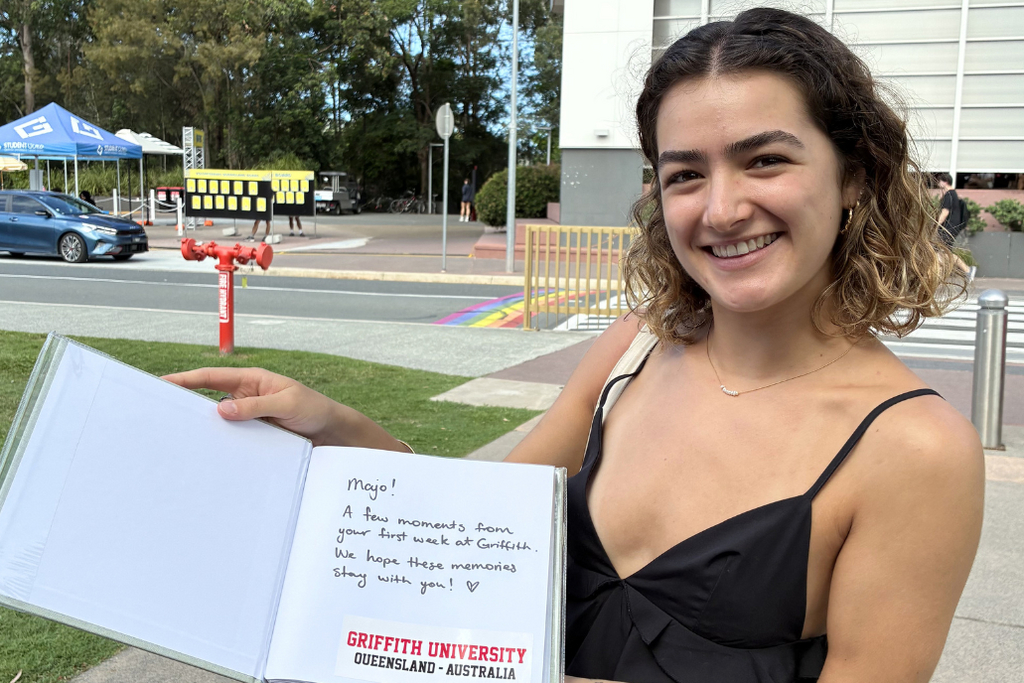 STUDENT GUILD
FIRE HYDRANT
Majo!
A few moments from
your first week at Griffith.
We hope these memories
stay with you! ♡
GRIFFITH UNIVERSITY
QUEENSLAND - AUSTRALIA